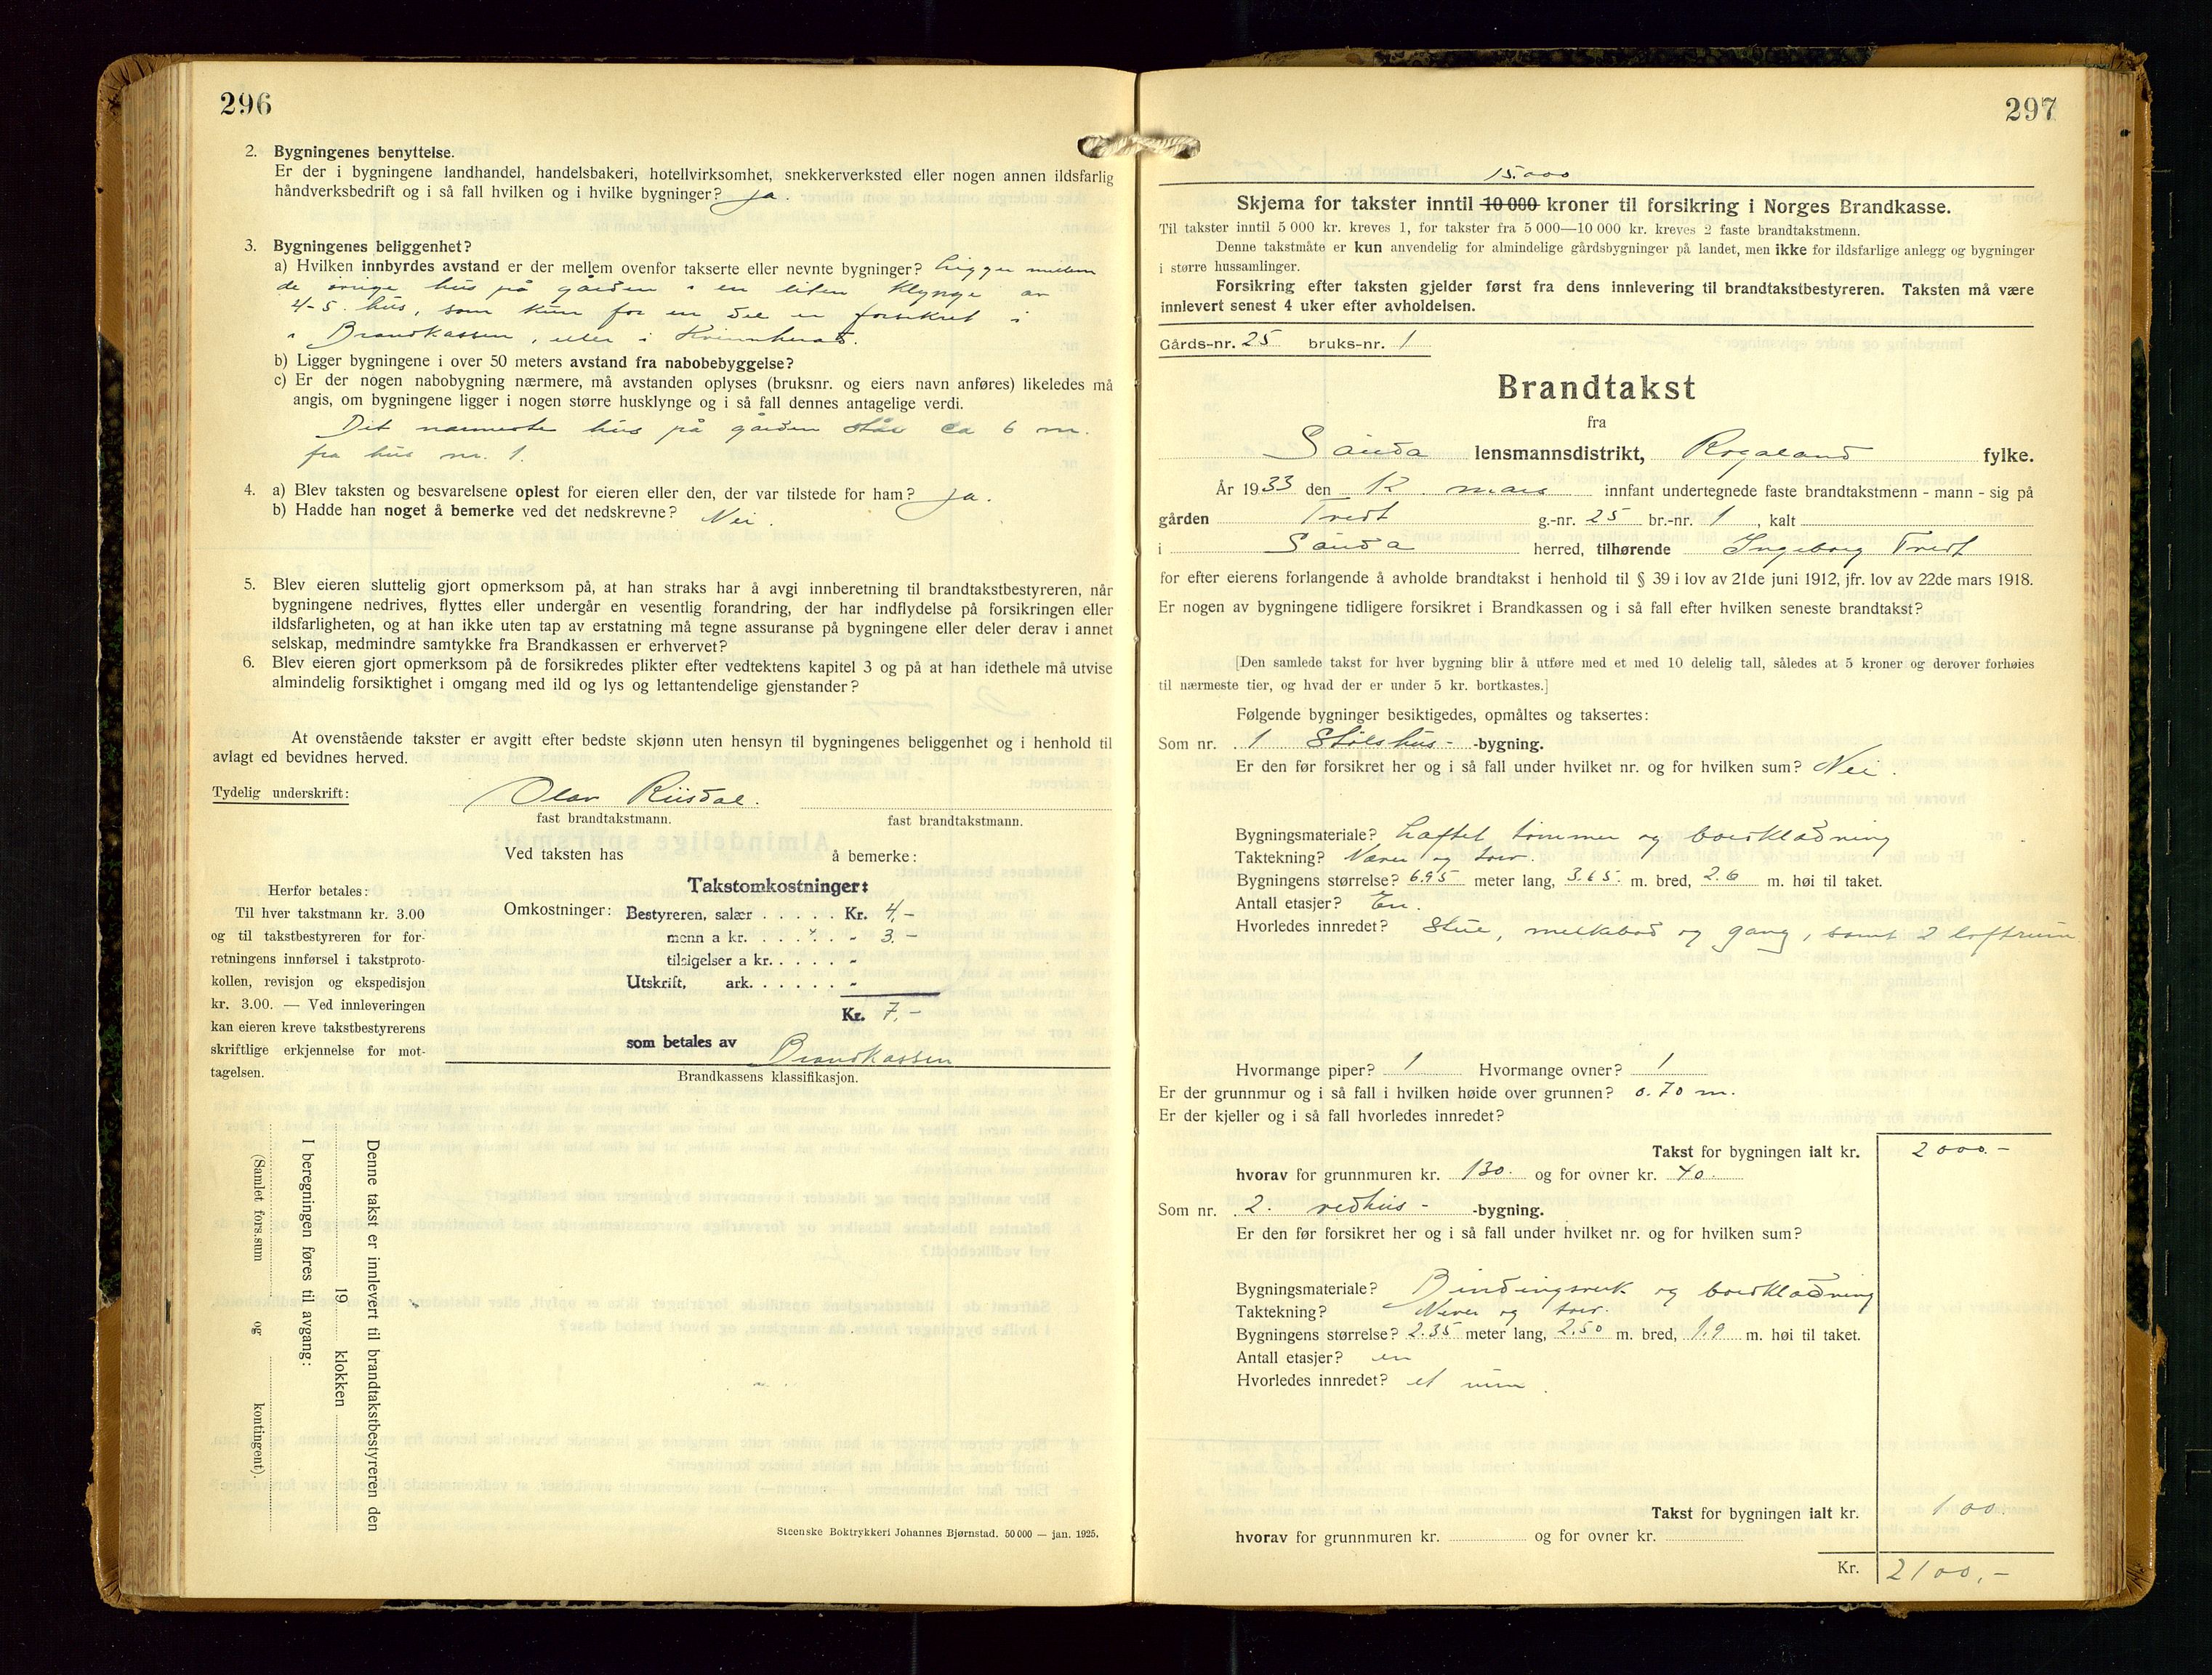 296
2. Bygningenes benyttelse.
Er der i bygningene landhandel, handelsbakeri, hotellvirksomhet, snekkerverksted eller nogen annen ildsfarlig
håndverksbedrift og i så fall hvilken og i hvilke bygninger? ja.
3. Bygningenes beliggenhet?
a) Hvilken innbyrdes avstand er der mellem ovenfor takserte eller nevnte bygninger? Ligger mellem
de øvrige hus på gården i en liten klynge av
4-5 hus, som kun for en del er forsikret i
i Brandkassen, eller i Kvinnherad.
b) Ligger bygningene i over 50 meters avstand fra nabobebyggelse?
c) Er der nogen nabobygning nærmere, må avstanden oplyses (bruksnr. og eiers navn anføres) likeledes må
angis, om bygningene ligger i nogen større husklynge og i så fall dennes antagelige verdi.
Det nærmeste hus på gården står ca 6 m.
fra hus nr. 1.
4. a) Blev taksten og besvarelsene oplest for eieren eller den, der var tilstede for ham? ja.
b) Hadde han noget å bemerke ved det nedskrevne? Nei.
5. Blev eieren sluttelig gjort opmerksom på, at han straks har å avgi innberetning til brandtakstbestyreren, når
bygningene nedrives, flyttes eller undergår en vesentlig forandring, der har indflydelse på forsikringen eller
ildsfarligheten, og at han ikke uten tap av erstatning må tegne assuranse på bygningene eller deler derav i annet
selskap, medmindre samtykke fra Brandkassen er erhvervet?
6. Blev eieren gjort opmerksom på de forsikredes plikter efter vedtektens kapitel 3 og på at han idethele må utvise
almindelig forsiktighet i omgang med ild og lys og lettantendelige gjenstander?
At ovenstående takster er avgitt efter bedste skjønn uten hensyn til bygningenes beliggenhet og i henhold til
avlagt ed bevidnes herved.
Tydelig underskrift: Olav Riisdal.
fast brandtakstmann. fast brandtakstmann.
Ved taksten has å bemerke:
Herfor betales:
Til hver takstmann kr. 3.00
og til takstbestyreren for for-
retningens innførsel i takstproto-
kollen, revisjon og ekspedisjon
kr. 3.00. — Ved innleveringen
kan eieren kreve takstbestyrerens
skriftlige erkjennelse for mot-
tagelsen.
Takstomkostninger:
Omkostninger: Bestyreren, salær . . . . . Kr. 4.-
menn a kr. . . . . . - 3.-
tilsigelser a kr. . . . . -
Utskrift, ark. . . . . . -
Kr. 7.-
som betales av Brandkassen
Brandkassens klassifikasjon.
Denne takst er innlevert til brandtakstbestyreren den
19 klokken
I beregningen føres til avgang:
(Samlet fors.sum og kontingent).
Steenske Boktrykkeri Johannes Bjørnstad. 50 000 — jan. 1925.
297
15.000
Skjema for takster inntil 10 000 kroner til forsikring i Norges Brandkasse.
Til takster inntil 5 000 kr. kreves 1, for takster fra 5 000—10 000 kr. kreves 2 faste brandtakstmenn.
Denne takstmåte er kun anvendelig for almindelige gårdsbygninger på landet, men ikke for ildsfarlige anlegg og bygninger
i større hussamlinger.
Forsikring efter taksten gjelder først fra dens innlevering til brandtakstbestyreren. Taksten må være
innlevert senest 4 uker efter avholdelsen.
Gårds-nr. 25 bruks-nr. 1
Brandtakst
fra
Sauda lensmannsdistrikt, Rogaland fylke.
År 1933 den 12. mars innfant undertegnede faste brandtakstmenn - mann - sig på
gården Tveit g.-nr. 25 br.-nr. 1, kalt
i Sauda herred, tilhørende Ingeborg Tveit
for efter eierens forlangende å avholde brandtakst i henhold til § 39 i lov av 21de juni 1912, jfr. lov av 22de mars 1918.
Er nogen av bygningene tidligere forsikret i Brandkassen og i så fall efter hvilken seneste brandtakst?
[Den samlede takst for hver bygning blir å utføre med et med 10 delelig tall, således at 5 kroner og derover forhøies
til nærmeste tier, og hvad der er under 5 kr. bortkastes.]
Følgende bygninger besiktigedes, opmåltes og taksertes:
Som nr. 1 Stølshus- -bygning.
Er den før forsikret her og i så fall under hvilket nr. og for hvilken sum? Nei.
Bygningsmateriale? Laftet tømmer og bordkledning
Taktekning? Never og torv.
Bygningens størrelse? 6.95 meter lang, 3.65. m. bred, 2.6 m. høi til taket.
Antall etasjer? En.
Hvorledes innredet? Stue, melkebod og gang, samt 2 loftrum
Hvormange piper? 1 Hvormange ovner? 1
Er der grunnmur og i så fall i hvilken høide over grunnen? 0.70 m.
Er der kjeller og i så fall hvorledes innredet?
Takst for bygningen ialt kr. 2000.-
hvorav for grunnmuren kr. 130. og for ovner kr. 40.
Som nr. 2. vedhus- -bygning.
Er den før forsikret her og i så fall under hvilket nr. og for hvilken sum?
Bygningsmateriale? Bindingsverk og bordkledning
Taktekning? Never og torv.
Bygningens størrelse? 2.35 meter lang, 2.50 m. bred, 1.9 m. høi til taket.
Antall etasjer? en
Hvorledes innredet? et rum.
Takst for bygningen ialt kr. 100.
hvorav for grunnmuren kr. og for ovner kr.
Kr. 2100.-